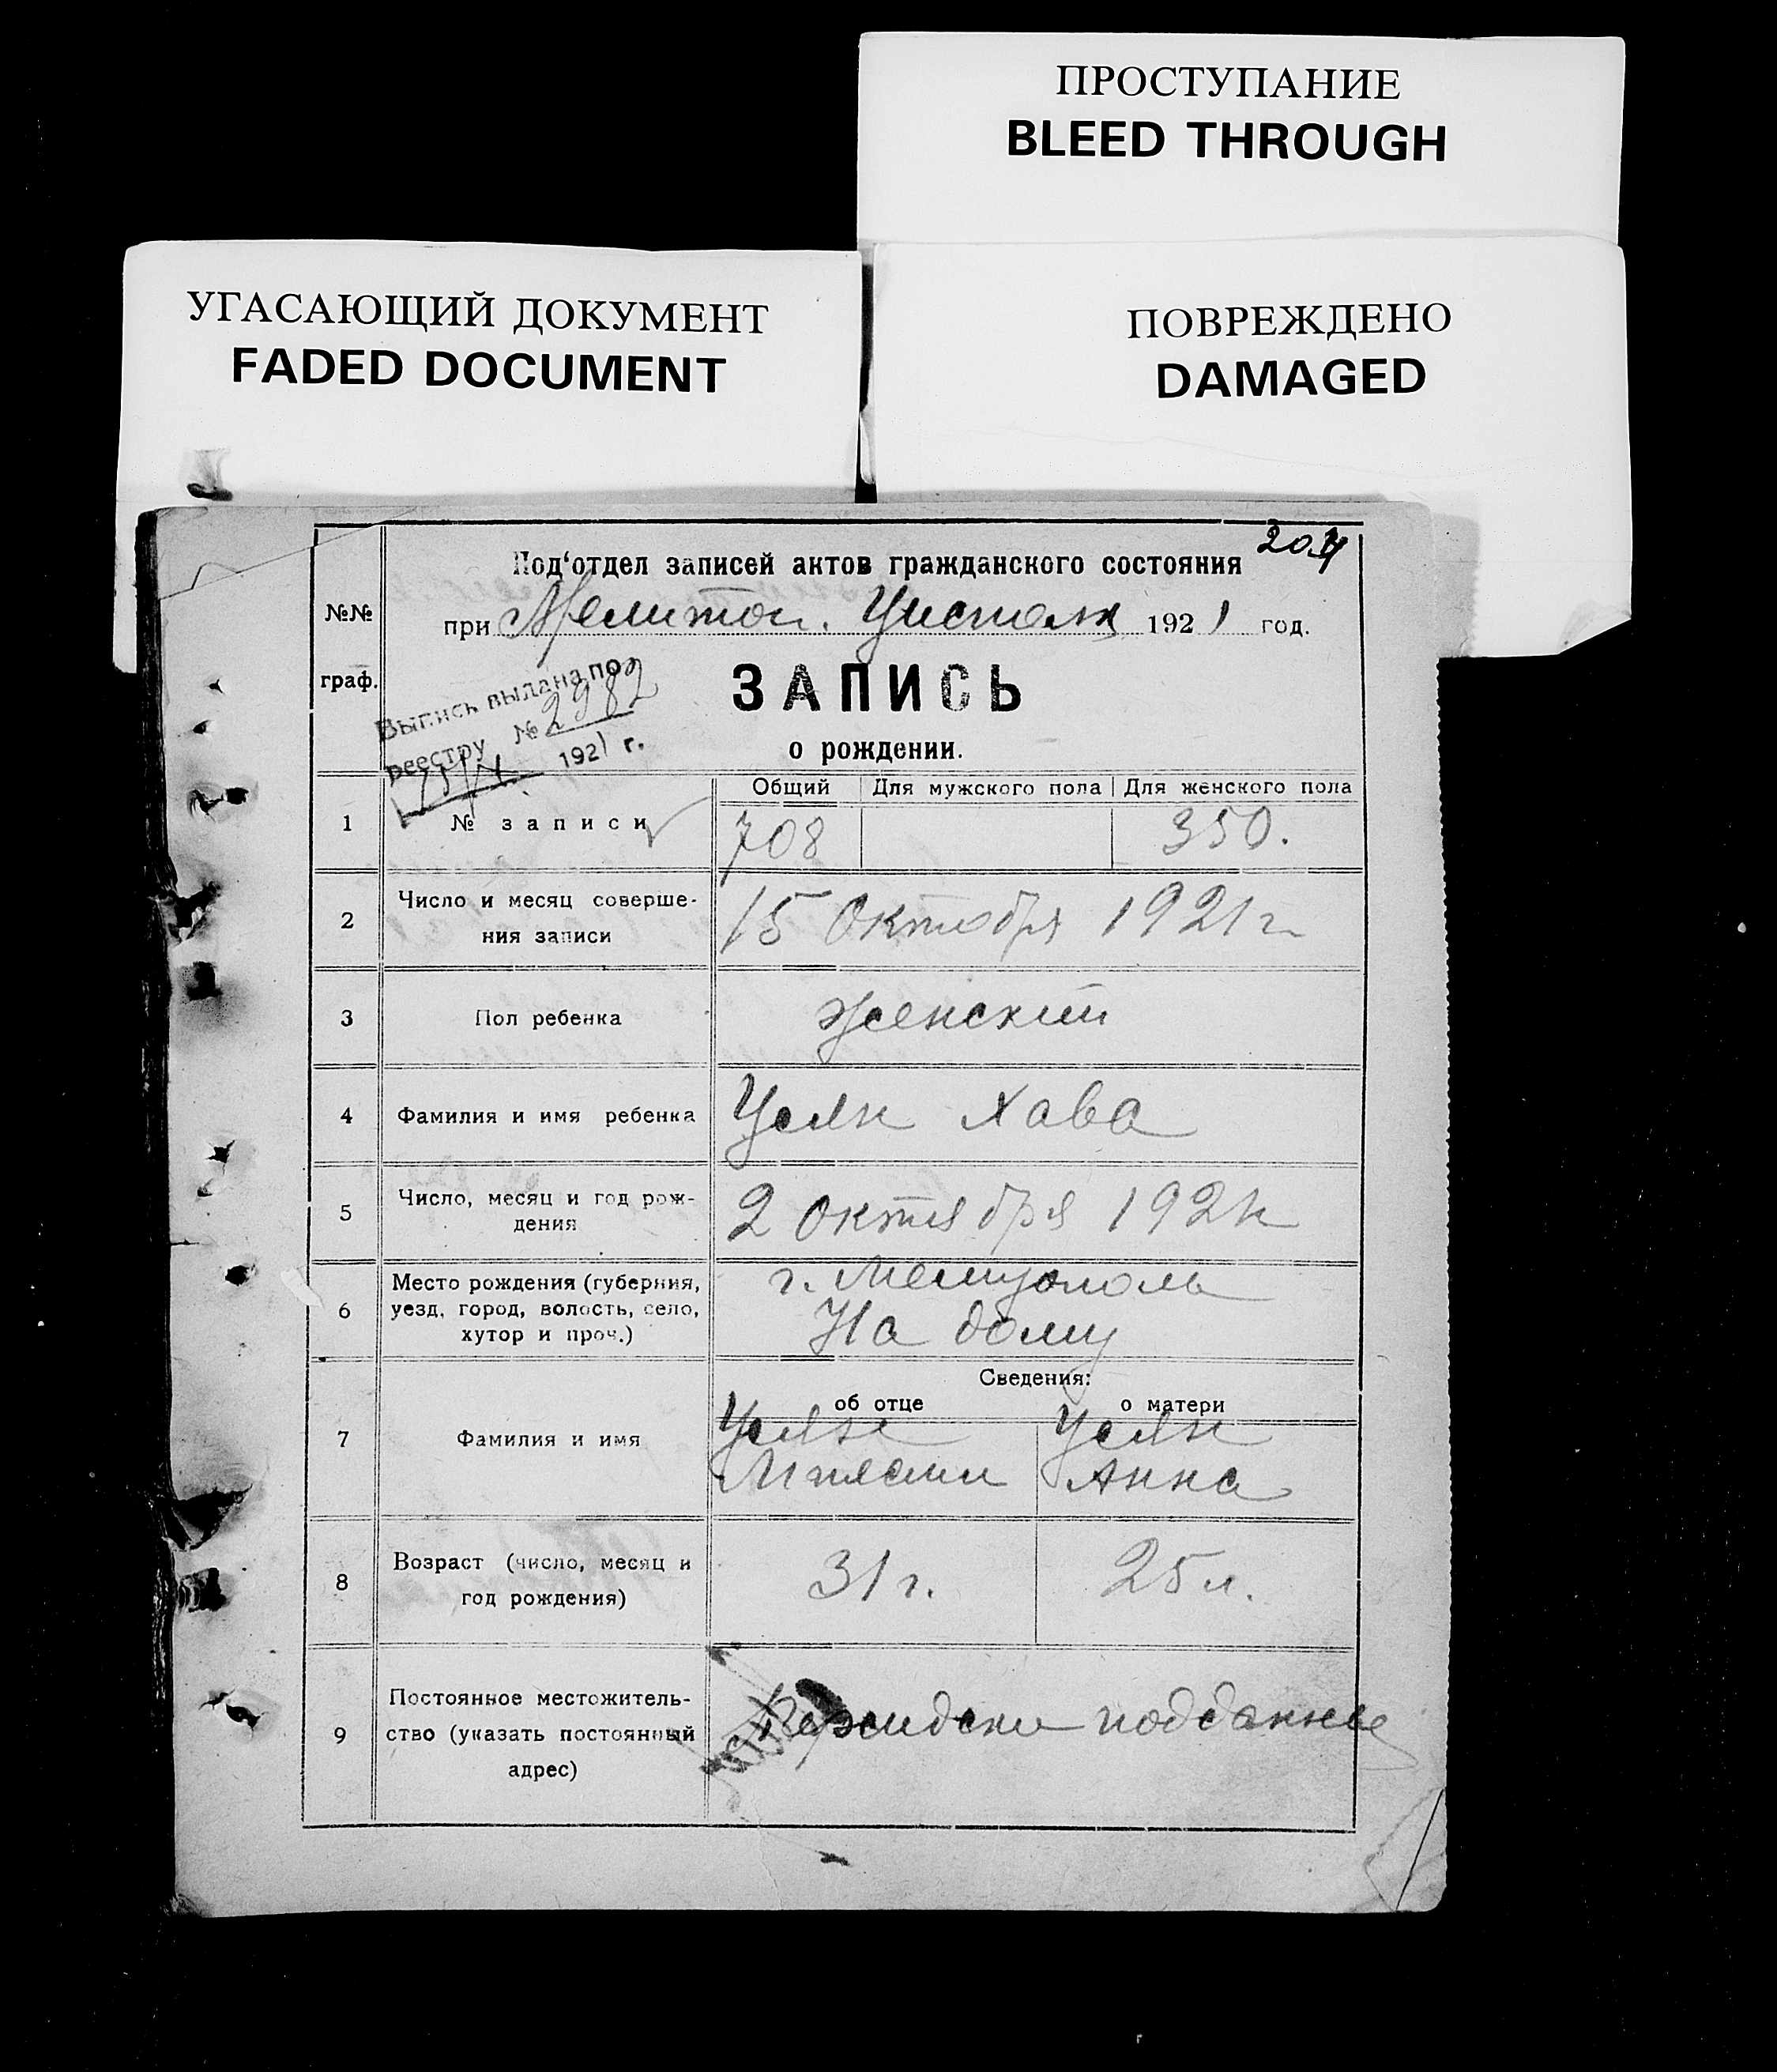 ПРОСТУПАНИЕ
BLEED THROUGH
УГАСАЮЩИЙ ДОКУМЕНТ
FADED DOCUMENT
ПОВРЕЖДЕНО
DAMAGED
Под‘отдел записей актов гражданского состояния
№№
при Мелитоп. Уисполк 1921 год.
граф.
ЗАПИСЬ
о рождении.
Выпись выдана по
реестру № 2982
1921 г.
Общий Для мужского пола Для женского пола
1 № записи 708 350.
2 Число и месяц соверше-
ния записи 15 Октября 1921 г
3 Пол ребенка Женский
4 Фамилия и имя ребенка Хава
5 Число, месяц и год рож-
дения 2 Октября 1921 г
6 Место рождения (губерния,
уезд, город, волость, село,
хутор и проч.)
г. Мелитополь
На дому
Сведения:
об отце о матери
7 Фамилия и имя
Анна
8 Возраст (число, месяц и
год рождения)
31 г. 25 л.
9 Постоянное местожитель-
ство (указать постоянный
адрес)
подданные